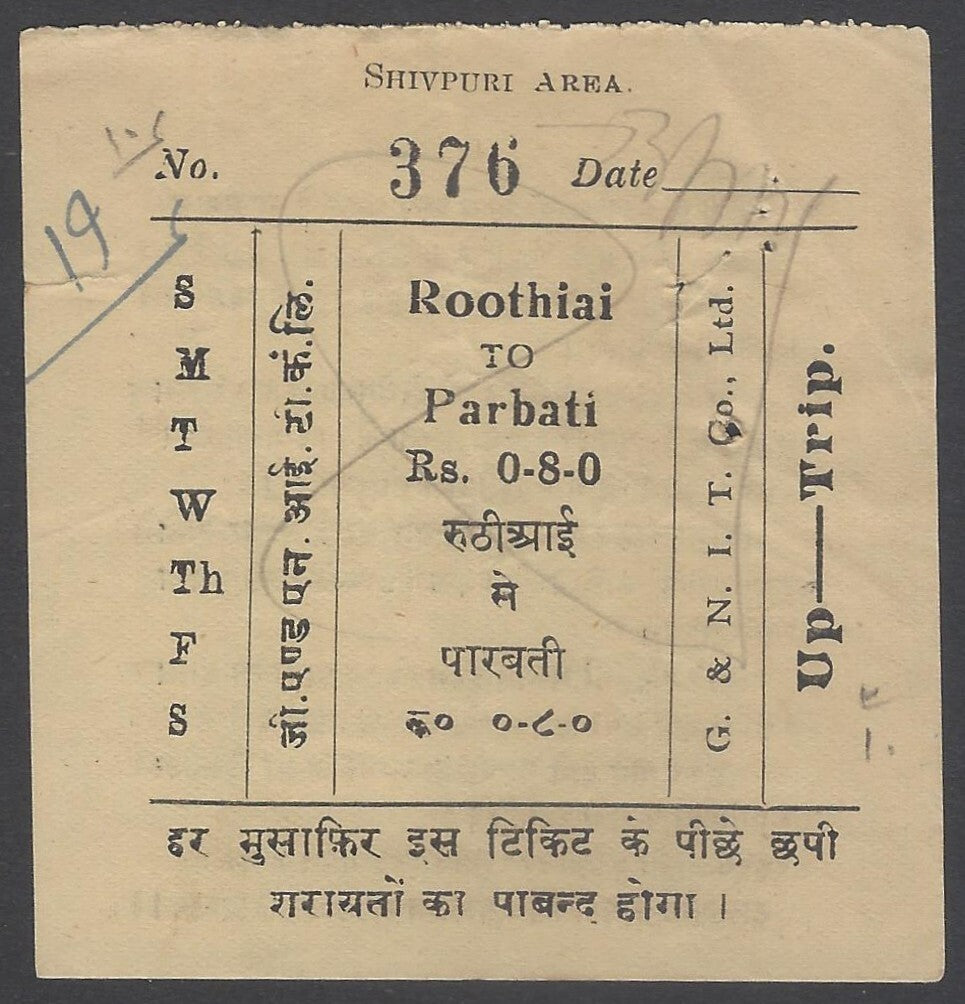 SHIVPURI AREA.
No. 376 Date
19
S
M
T
W
Th
F
S
जी. एण्ड एन. आई. टी. कं. लि.
Roothiai
TO
Parbati
Rs. 0-8-0
रुठीआई
से
पारबती
रु० ०-८-०
G. & N. I. T. Co., Ltd.
Up—Trip.
हर मुसाफ़िर इस टिकिट के पीछे छपी
शरायतों का पाबन्द होगा ।